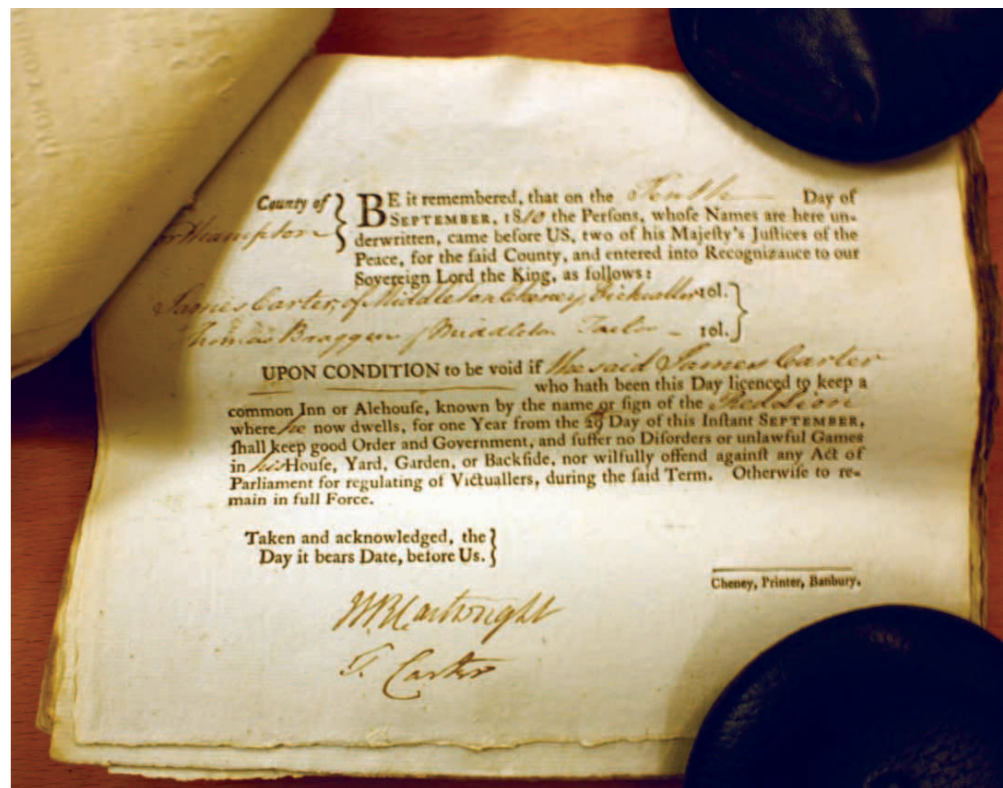 County of } BE it remembered, that on the Tenth Day of
orthampton SEPTEMBER, 1810 the Perſons, whoſe Names are here un-
derwritten, came before US, two of his Majeſty's Juſtices of the
Peace, for the ſaid County, and entered into Recognizance to our
Sovereign Lord the King, as follows:
James Carter, of Middleton Cheney, Victualler 10l. }
Thomas Braggin of Middleton Taylor — 10l.
UPON CONDITION to be void if the said James Carter
who hath been this Day licenced to keep a
common Inn or Alehouſe, known by the name or ſign of the Red Lion
where he now dwells, for one Year from the 29 Day of this Inſtant SEPTEMBER,
ſhall keep good Order and Government, and ſuffer no Diſorders or unlawful Games
in his Houſe, Yard, Garden, or Backſide, nor wilfully offend againſt any Act of
Parliament for regulating of Victuallers, during the ſaid Term. Otherwiſe to re-
main in full Force.
Taken and acknowledged, the }
Day it bears Date, before Us.
Cheney, Printer, Banbury.
W R Cartwright
T. Carter